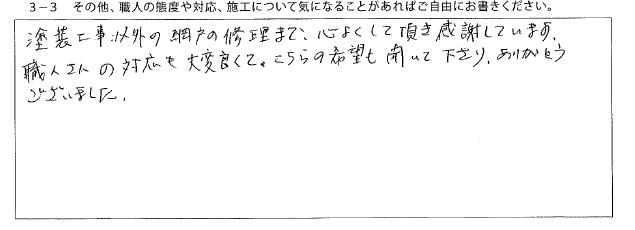 3-3 その他、職人の態度や対応、施工について気になることがあればご自由にお書きください。
塗装工事以外の網戸の修理まで、心よくして頂き感謝しています。
職人さんの対応も大変良くて。こちらの希望も聞いて下さり、ありがとう
ございました。